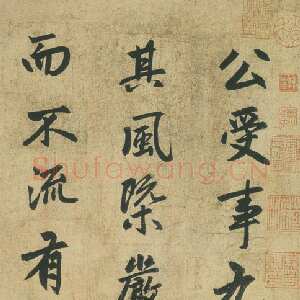 公受事
其風槩嚴
而不流有
Shufawang.cn